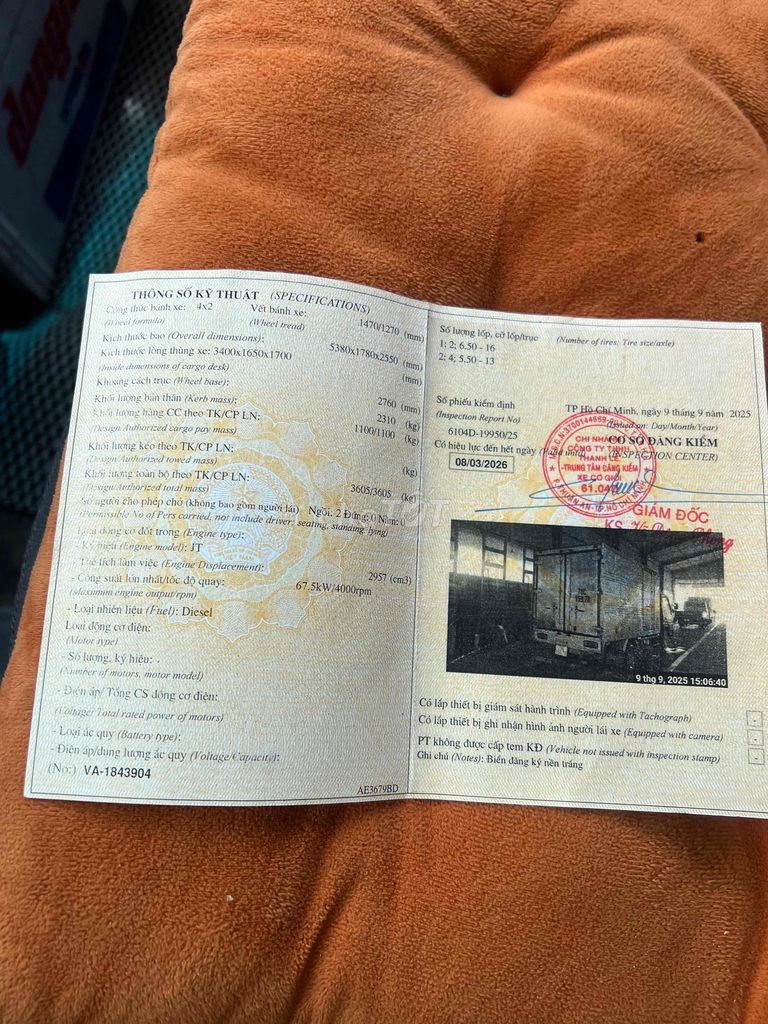 THÔNG SỐ KỸ THUẬT (SPECIFICATIONS)
Công thức bánh xe: 4x2 Vết bánh xe: 1470/1270 (mm)
(Wheel formula) (Wheel tread)
Kích thước bao (Overall dimensions): 5380x1780x2550 (mm)
Kích thước lòng thùng xe: 3400x1650x1700 (mm)
(Inside dimensions of cargo desk)
Khoảng cách trục (Wheel base): 2760 (mm)
Khối lượng bản thân (Kerb mass): 2310 (kg)
Khối lượng hàng CC theo TK/CP LN: 1100/1100 (kg)
(Design Authorized cargo pay mass)
Khối lượng kéo theo TK/CP LN: (kg)
(Design Authorized towed mass)
Khối lượng toàn bộ theo TK/CP LN: 3605/3605 (kg)
(Design Authorized total mass)
Số người cho phép chở (không bao gồm người lái) Ngồi: 2 Đứng: 0 Nằm: 0
(Permissible No of Pers carried, not include driver: seating, standing, lying)
Loại động cơ đốt trong (Engine type):
- Ký hiệu (Engine model): JT
- Thể tích làm việc (Engine Displacement): 2957 (cm3)
- Công suất lớn nhất/tốc độ quay: 67.5kW/4000rpm
(Maximum engine output/rpm)
- Loại nhiên liệu (Fuel): Diesel
Loại động cơ điện:
(Motor type)
- Số lượng, ký hiệu: .
(Number of motors, motor model)
- Điện áp/ Tổng CS động cơ điện:
(Voltage/ Total rated power of motors)
- Loại ắc quy (Battery type):
- Điện áp/dung lượng ắc quy (Voltage/Capacity):
(No:) VA-1843904
AE3679BD
Số lượng lốp, cỡ lốp/trục (Number of tires; Tire size/axle)
1: 2; 6.50 - 16
2: 4; 5.50 - 13
Số phiếu kiểm định
(Inspection Report No)
6104D-19950/25
TP Hồ Chí Minh, ngày 9 tháng 9 năm 2025
(Issued on: Day/Month/Year)
Có hiệu lực đến hết ngày
08/03/2026
CƠ SỞ ĐĂNG KIỂM
(INSPECTION CENTER)
CHI NHÁNH
CÔNG TY TNHH
THANH LỄ
-TRUNG TÂM ĐĂNG KIỂM
XE CƠ GIỚI
GIÁM ĐỐC
9 thg 9, 2025 15:06:40
Có lắp thiết bị giám sát hành trình (Equipped with Tachograph)
Có lắp thiết bị ghi nhận hình ảnh người lái xe (Equipped with camera)
PT không được cấp tem KĐ (Vehicle not issued with inspection stamp)
Ghi chú (Notes): Biển đăng ký nền trắng